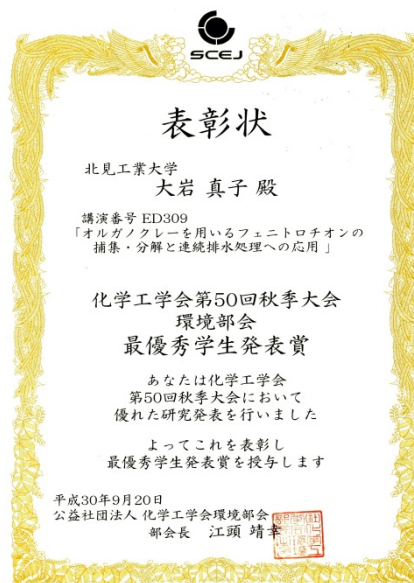 SCEJ
表彰状
北見工業大学
大岩 真子 殿
講演番号 ED309
「オルガノクレーを用いるフェニトロチオンの
捕集・分解と連続排水処理への応用 」
化学工学会第50回秋季大会
環境部会
最優秀学生発表賞
あなたは化学工学会
第50回秋季大会において
優れた研究発表を行いました
よってこれを表彰し
最優秀学生発表賞を授与します
平成30年9月20日
公益社団法人 化学工学会環境部会
部会長 江頭 靖幸